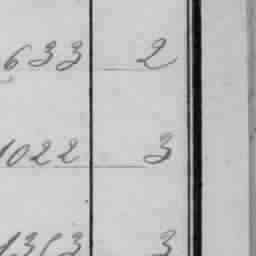 633 2
1022 3
3